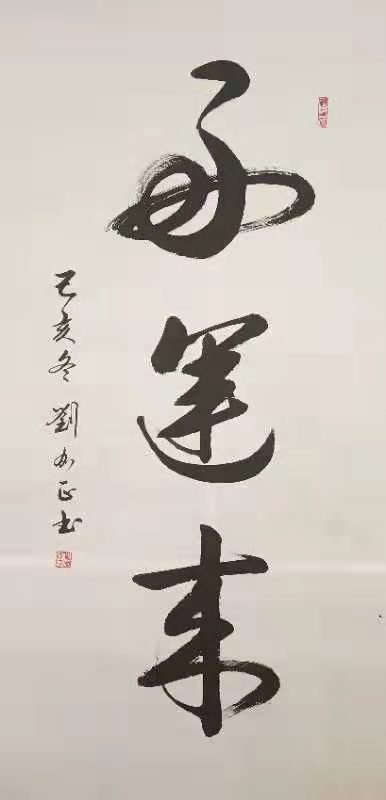 好運来
己亥冬 劉如正书